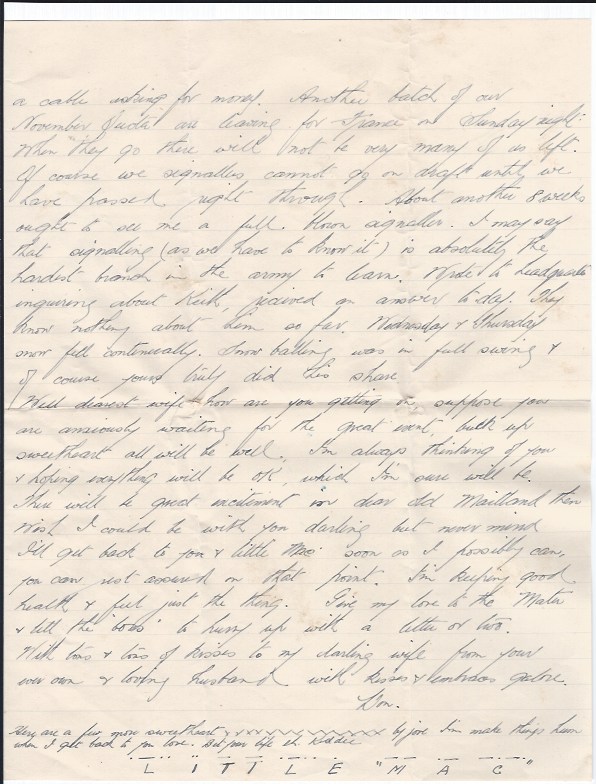 a cable asking for money. Another batch of our
November Quota are leaving for France on Sunday night.
When they go there will not be very many of us left.
Of course we signallers cannot go on draft until we
have passed right through. About another 8 weeks
ought to see me a full blown signaller. I may say
that signalling (as we have to know it) is absolutely the
hardest branch in the army to learn. Wrote to headquarters
enquiring about Keith, received an answer to-day. They
know nothing about him so far. Wednesday & Thursday
snow fell continually. Snow balling was in full swing &
of course yours truly did his share
Well dearest wife how are you getting on, suppose you
are anxiously waiting for the great event, buck up
sweetheart all will be well. I'm always thinking of you
& hoping everything will be OK, which I'm sure will be.
There will be great excitement in dear old Maitland then
Wish I could be with you darling but never mind
I'll get back to you & little Mac soon as I possibly can,
you can rest assured on that point. I'm keeping good
health & feel just the thing. Give my love to the Mater
& tell the "boys" to hurry up with a letter or two.
With tons & tons of kisses to my darling wife from your
ever own & loving husband with kisses & embraces galore.
Don.
Here are a few more sweetheart xxxxxxxxxxxxxxx by jove I'm make things hum
when I get back to you love. life eh Kiddie
"LITTLE "MAC"